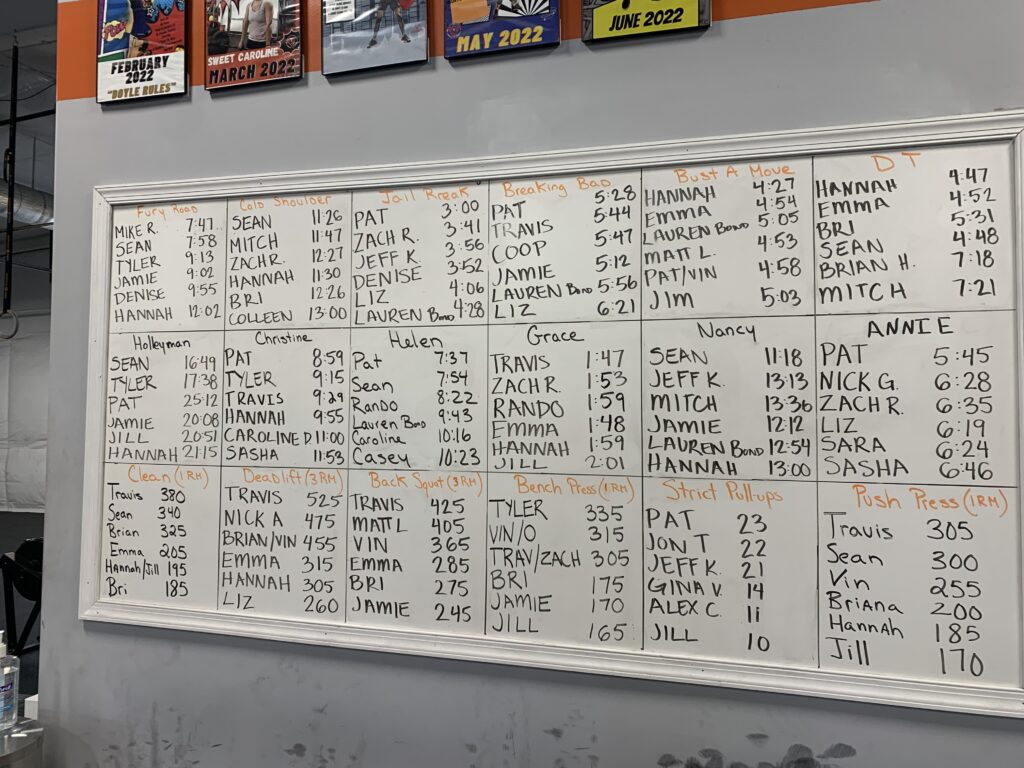 FEBRUARY
2022
"DOYLE RULES"
SWEET CAROLINE
MARCH 2022
MAY 2022
JUNE 2022
Fury Road
MIKE R. 7:47
SEAN 7:58
TYLER 9:13
JAMIE 9:02
DENISE 9:55
HANNAH 12:02
Cold Shoulder
SEAN 11:26
MITCH 11:47
ZACH R. 12:27
HANNAH 11:30
BRI 12:26
COLLEEN 13:00
Jail Break
PAT 3:00
ZACH R. 3:41
JEFF K. 3:56
DENISE 3:52
LIZ 4:06
LAUREN BOND 4:28
Breaking Bad
PAT 5:28
TRAVIS 5:44
COOP 5:47
JAMIE 5:12
LAUREN BOND 5:56
LIZ 6:21
Bust A Move
HANNAH 4:27
EMMA 4:54
LAUREN BOND 5:05
MATT L. 4:53
PAT/VIN 4:58
JIM 5:03
DT
HANNAH 4:47
EMMA 4:52
BRI 5:31
SEAN 4:48
BRIAN H. 7:18
MITCH 7:21
Holleyman
SEAN 16:49
TYLER 17:38
PAT 25:12
JAMIE 20:08
JILL 20:51
HANNAH 21:15
Christine
PAT 8:59
TYLER 9:15
TRAVIS 9:29
HANNAH 9:55
CAROLINE D 11:00
SASHA 11:53
Helen
Pat 7:37
Sean 7:54
RANDO 8:22
Lauren Bond 9:43
Caroline 10:16
Casey 10:23
Grace
TRAVIS 1:47
ZACH R. 1:53
RANDO 1:59
EMMA 1:48
HANNAH 1:59
JILL 2:01
Nancy
SEAN 11:18
JEFF K. 13:13
MITCH 13:36
JAMIE 12:12
LAUREN BOND 12:54
HANNAH 13:00
ANNIE
PAT 5:45
NICK G. 6:28
ZACH R. 6:35
LIZ 6:19
SARA 6:24
SASHA 6:46
Clean (1RM)
Travis 380
Sean 340
Brian 325
Emma 205
Hannah/Jill 195
Bri 185
Deadlift (3RM)
TRAVIS 525
NICK A 475
BRIAN/VIN 455
EMMA 315
HANNAH 305
LIZ 260
Back Squat (3RM)
TRAVIS 425
MATT L 405
VIN 365
EMMA 285
BRI 275
JAMIE 245
Bench Press (1RM)
TYLER 335
VIN/O 315
TRAV/ZACH 305
BRI 175
JAMIE 170
JILL 165
Strict Pullups
PAT 23
JON T 22
JEFF K. 21
GINA V. 14
ALEX C. 11
JILL 10
Push Press (1RM)
Travis 305
Sean 300
Vin 255
Briana 200
Hannah 185
Jill 170